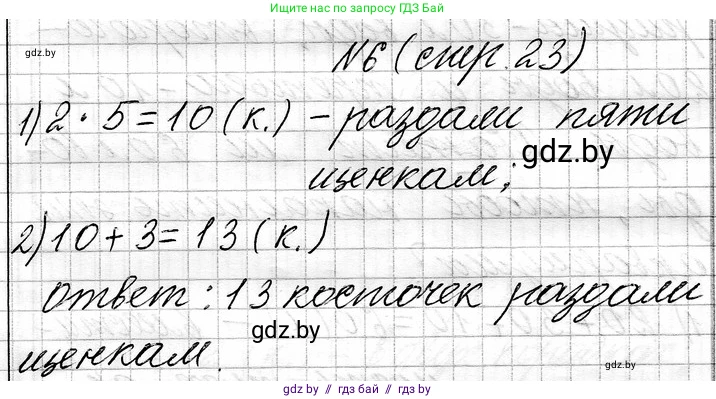 Ищите нас по запросу ГДЗ Бай
gdz.by
№6 (стр. 23)
1) 2 · 5 = 10 (к.) – раздали пяти
щенкам;
gdz.by
2) 10 + 3 = 13 (к.)
Ответ: 13 косточек раздали
gdz.by
щенкам.
gdz.by
gdz.by // гдз бай // gdz.by